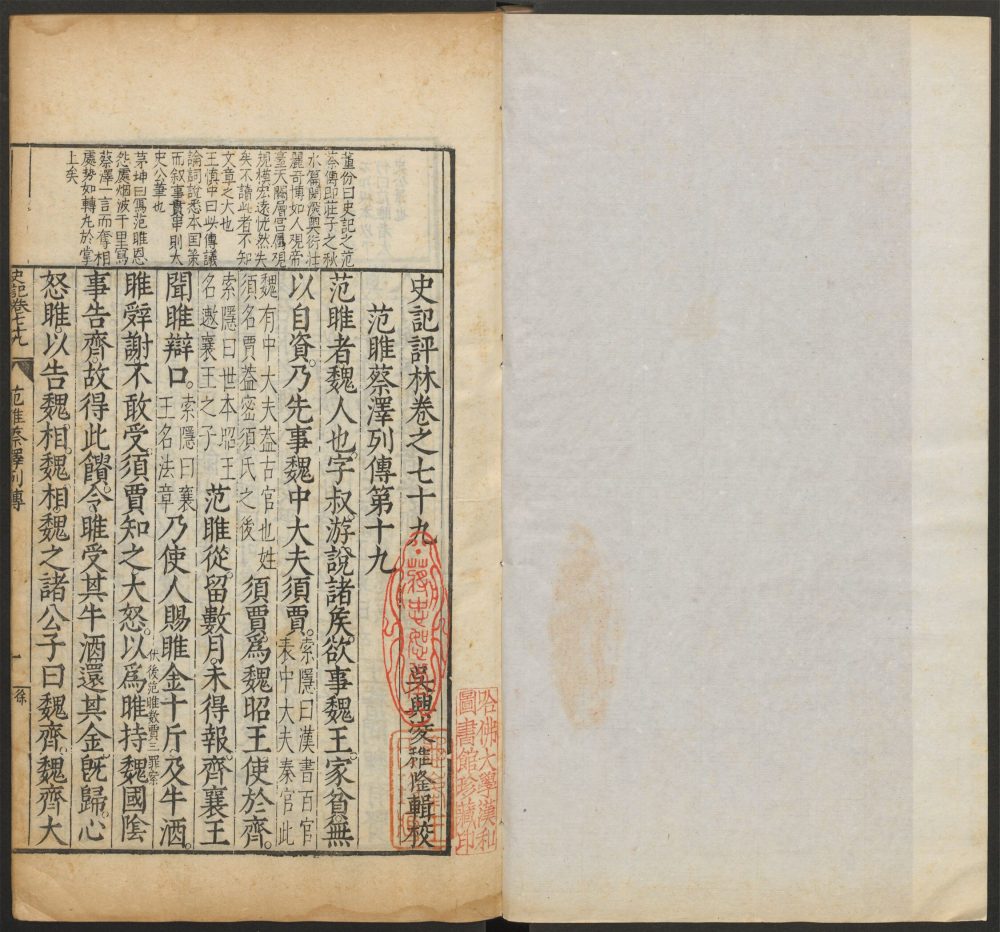 史記評林卷之七十九
吳興凌稚隆輯校
范雎蔡澤列傳第十九
范雎者魏人也字叔游說諸侯欲事魏王家貧無
以自資乃先事魏中大夫須賈索隱曰漢書百官
表中大夫秦官此
魏有中大夫葢古官也姓
須名賈葢密須氏之後
須賈爲魏昭王使於齊
索隱曰世本昭王
名遫襄王之子
范雎從留數月未得報齊襄王
聞雎辯口索隱曰襄
王名法章
乃使人賜雎金十斤及牛酒
雎辭謝不敢受須賈知之大怒以爲雎持魏國陰
伏後范雎數賈三罪案
事告齊故得此饋令雎受其牛酒還其金旣歸心
怒雎以告魏相魏相魏之諸公子曰魏齊魏齊大
董份曰史記之范
蔡傳卽莊子之秋
水篇閎深奧衍壯
麗奇博如人覩帝
臺天闕層宮廣覩
規模宏遠怳然失
矣不讀此者不知
文章之大也
王慎中曰此傳議
論詞說悉本囯策
而叙事貫串則太
史公筆也
茅坤曰寫范雎恩
怨處烟波千里寫
蔡澤一言而奪相
處勢如轉丸於掌
上矣
史記卷七十九
范雎蔡澤列傳
一
徐
哈佛大學漢和
圖書館珍藏印